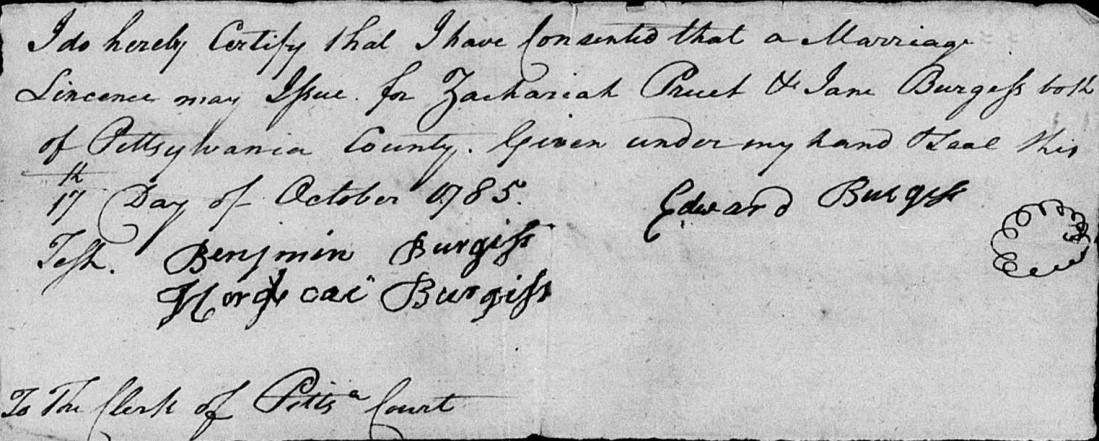 I do hereby Certify that I have Consented that a Marriage
Lincence may Issue for Zachariah Pruet & Jane Burgess both
of Pittsylvania County. Given under my hand & Seal this
17th Day of October 1785. Edward Burgess
Test. Benjmin Burgiss
Mordecai Burgiss
To The Clerk of Pittsa Court